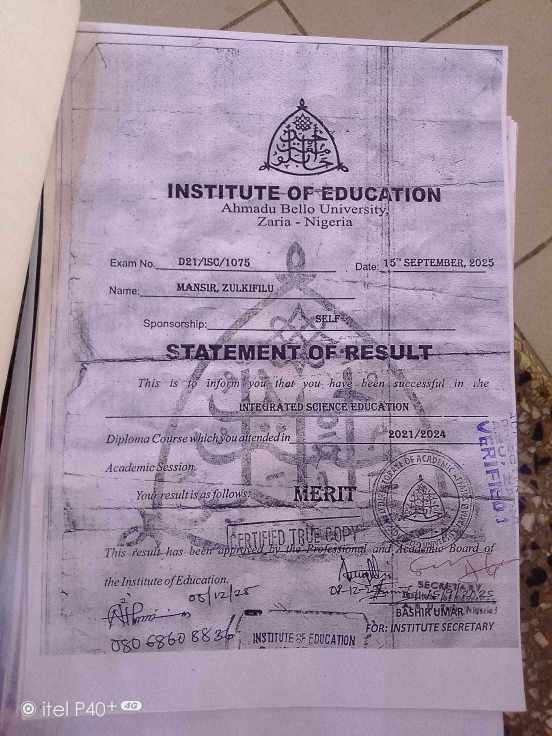 INSTITUTE OF EDUCATION
Ahmadu Bello University,
Zaria - Nigeria
Exam No. D21/ISC/1075 Date: 15TH SEPTEMBER, 2025
Name: MANSIR, ZULKIFILU
Sponsorship: SELF
STATEMENT OF RESULT
This is to inform you that you have been successful in the
INTEGRATED SCIENCE EDUCATION
Diploma Course which you attended in 2021/2024
Academic Session.
Your result is as follows: MERIT
VERIFIED
CERTIFIED TRUE COPY
This result has been approved by the Professional and Academic Board of
the Institute of Education.
SECRETARY
05/12/25
08-12-
BASHIR UMAR
080 6860 8836
INSTITUTE OF EDUCATION
FOR: INSTITUTE SECRETARY
itel P40+ 4G